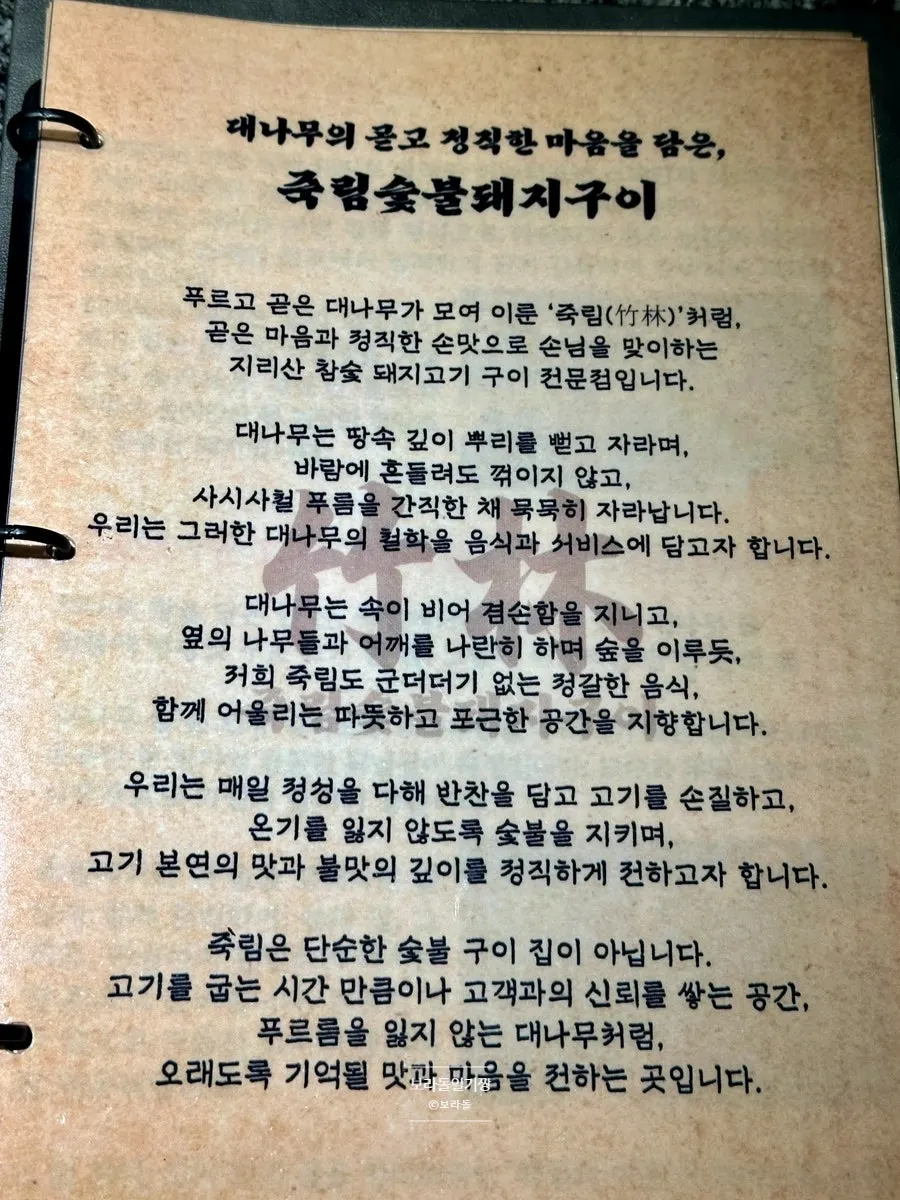 대나무의 곧고 정직한 마음을 담은,
죽림숯불돼지구이
푸르고 곧은 대나무가 모여 이룬 ‘죽림(竹林)’처럼,
곧은 마음과 정직한 손맛으로 손님을 맞이하는
지리산 참숯 돼지고기 구이 전문점입니다.
대나무는 땅속 깊이 뿌리를 뻗고 자라며,
바람에 흔들려도 꺾이지 않고,
사시사철 푸름을 간직한 채 묵묵히 자라납니다.
우리는 그러한 대나무의 철학을 음식과 서비스에 담고자 합니다.
竹林
대나무는 속이 비어 겸손함을 지니고,
옆의 나무들과 어깨를 나란히 하며 숲을 이루듯,
저희 죽림도 군더더기 없는 정갈한 음식,
죽림숯불돼지구이
함께 어울리는 따뜻하고 포근한 공간을 지향합니다.
우리는 매일 정성을 다해 반찬을 담고 고기를 손질하고,
온기를 잃지 않도록 숯불을 지키며,
고기 본연의 맛과 불맛의 깊이를 정직하게 전하고자 합니다.
죽림은 단순한 숯불 구이 집이 아닙니다.
고기를 굽는 시간 만큼이나 고객과의 신뢰를 쌓는 공간,
푸르름을 잃지 않는 대나무처럼,
오래도록 기억될 맛과 마음을 전하는 곳입니다.
보라돌일기장
©보라돌